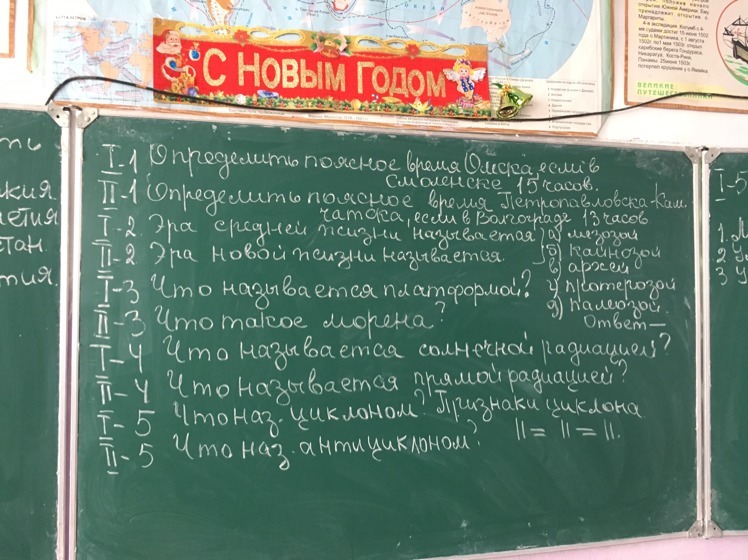 С Новым Годом
открытие Южной Америки
Маргариты.
4-я экспедиция. Колумб с
ВЕЛИКИЕ
ПУТЕШЕСТВЕННИКИ
ть
кия
тан
тия.
I-1 Определить поясное время Омска, если в
Смоленске 15 часов.
II-1 Определить поясное время Петропавловска-Кам.
чатска, если в Волгограде 13 часов
I-2 Эра средней жизни называется а) мезозой
II-2 Эра новой жизни называется б) кайнозой
в) архей
I-3 Что называется платформой? г) протерозой
д) палеозой
II-3 Что такое морена? Ответ —
I-4 Что называется солнечной радиацией?
II-4 Что называется прямой радиацией?
I-5 Что наз. циклоном? Признаки циклона
II-5 Что наз. антициклоном? 11 = 11 = 11.
I-5
1.
2
3